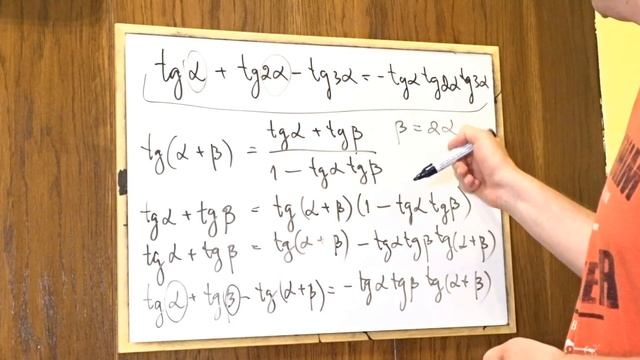 tgα + tg2α - tg3α = -tgα tg2α tg3α
tg(α+β) = (tgα + tgβ)/(1 - tgα tgβ) β = 2α
tgα + tgβ = tg(α+β)(1 - tgα tgβ)
tgα + tgβ = tg(α+β) - tgα tgβ tg(α+β)
tgα + tgβ - tg(α+β) = -tgα tgβ tg(α+β)